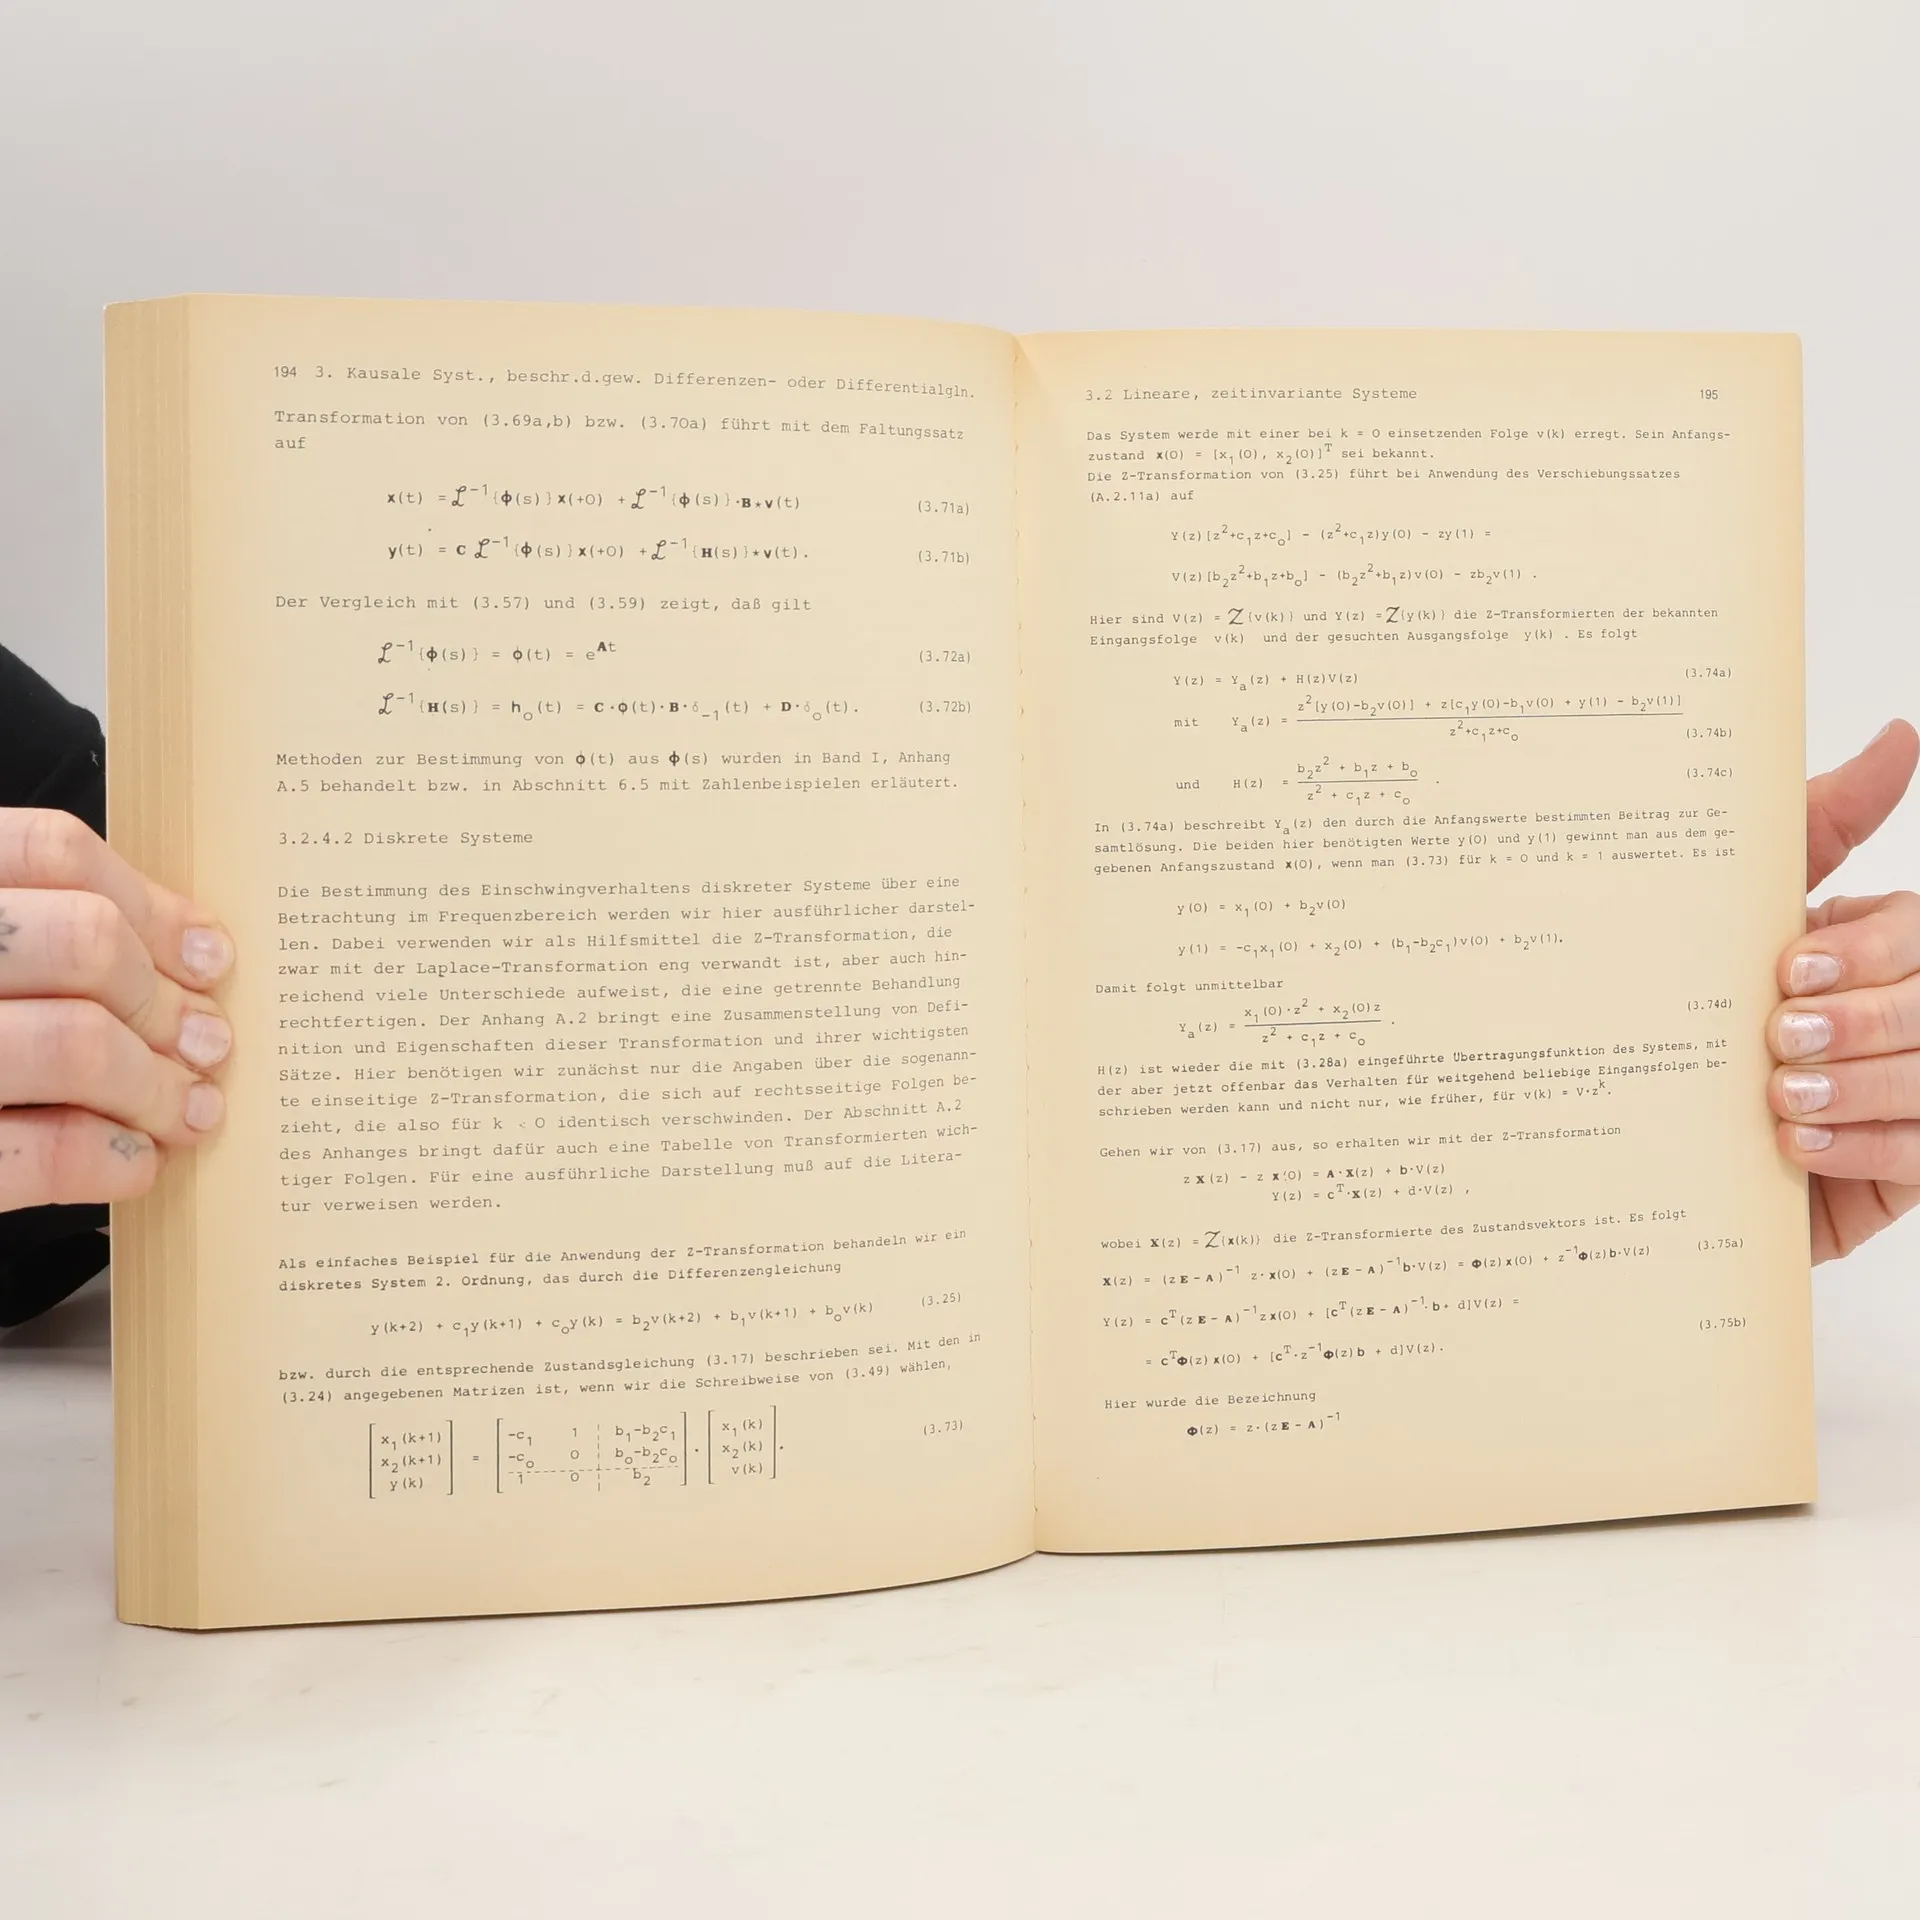 194 3. Kausale Syst., beschr.d.gew. Differenzen- oder Differentialgln.
Transformation von (3.69a,b) bzw. (3.70a) führt mit dem Faltungssatz
auf
x(t) = ℒ⁻¹{ϕ(s)}x(+0) + ℒ⁻¹{ϕ(s)}·B⋆v(t) (3.71a)
y(t) = C ℒ⁻¹{ϕ(s)}x(+0) + ℒ⁻¹{H(s)}⋆v(t). (3.71b)
Der Vergleich mit (3.57) und (3.59) zeigt, daß gilt
ℒ⁻¹{ϕ(s)} = ϕ(t) = e^At (3.72a)
ℒ⁻¹{H(s)} = h₀(t) = C·ϕ(t)·B·δ₋₁(t) + D·δ₀(t). (3.72b)
Methoden zur Bestimmung von ϕ(t) aus ϕ(s) wurden in Band I, Anhang
A.5 behandelt bzw. in Abschnitt 6.5 mit Zahlenbeispielen erläutert.
3.2.4.2 Diskrete Systeme
Die Bestimmung des Einschwingverhaltens diskreter Systeme über eine
Betrachtung im Frequenzbereich werden wir hier ausführlicher darstel-
len. Dabei verwenden wir als Hilfsmittel die Z-Transformation, die
zwar mit der Laplace-Transformation eng verwandt ist, aber auch hin-
reichend viele Unterschiede aufweist, die eine getrennte Behandlung
rechtfertigen. Der Anhang A.2 bringt eine Zusammenstellung von Defi-
nition und Eigenschaften dieser Transformation und ihrer wichtigsten
Sätze. Hier benötigen wir zunächst nur die Angaben über die sogenann-
te einseitige Z-Transformation, die sich auf rechtsseitige Folgen be-
zieht, die also für k < 0 identisch verschwinden. Der Abschnitt A.2
des Anhanges bringt dafür auch eine Tabelle von Transformierten wich-
tiger Folgen. Für eine ausführliche Darstellung muß auf die Litera-
tur verweisen werden.
Als einfaches Beispiel für die Anwendung der Z-Transformation behandeln wir ein
diskretes System 2. Ordnung, das durch die Differenzengleichung
y(k+2) + c₁y(k+1) + c₀y(k) = b₂v(k+2) + b₁v(k+1) + b₀v(k) (3.25)
bzw. durch die entsprechende Zustandsgleichung (3.17) beschrieben sei. Mit den in
(3.24) angegebenen Matrizen ist, wenn wir die Schreibweise von (3.49) wählen,
x₁(k+1) -c₁ 1 b₁-b₂c₁ x₁(k) (3.73)
x₂(k+1) = -c₀ 0 b₀-b₂c₀ · x₂(k) .
y(k) 1 0 b₂ v(k)
3.2 Lineare, zeitinvariante Systeme 195
Das System werde mit einer bei k = 0 einsetzenden Folge v(k) erregt. Sein Anfangs-
zustand x(0) = [x₁(0), x₂(0)]ᵀ sei bekannt.
Die Z-Transformation von (3.25) führt bei Anwendung des Verschiebungssatzes
(A.2.11a) auf
Y(z)[z²+c₁z+c₀] - (z²+c₁z)y(0) - zy(1) =
V(z)[b₂z²+b₁z+b₀] - (b₂z²+b₁z)v(0) - zb₂v(1) .
Hier sind V(z) = Z{v(k)} und Y(z) = Z{y(k)} die Z-Transformierten der bekannten
Eingangsfolge v(k) und der gesuchten Ausgangsfolge y(k) . Es folgt
Y(z) = Yₐ(z) + H(z)V(z) (3.74a)
z²[y(0)-b₂v(0)] + z[c₁y(0)-b₁v(0) + y(1) - b₂v(1)]
mit Yₐ(z) =
z²+c₁z+c₀ (3.74b)
b₂z² + b₁z + b₀
und H(z) = . (3.74c)
z² + c₁z + c₀
In (3.74a) beschreibt Yₐ(z) den durch die Anfangswerte bestimmten Beitrag zur Ge-
samtlösung. Die beiden hier benötigten Werte y(0) und y(1) gewinnt man aus dem ge-
gebenen Anfangszustand x(0), wenn man (3.73) für k = 0 und k = 1 auswertet. Es ist
y(0) = x₁(0) + b₂v(0)
y(1) = -c₁x₁(0) + x₂(0) + (b₁-b₂c₁)v(0) + b₂v(1).
Damit folgt unmittelbar
x₁(0)·z² + x₂(0)z (3.74d)
Yₐ(z) = .
z² + c₁z + c₀
H(z) ist wieder die mit (3.28a) eingeführte Übertragungsfunktion des Systems, mit
der aber jetzt offenbar das Verhalten für weitgehend beliebige Eingangsfolgen be-
schrieben werden kann und nicht nur, wie früher, für v(k) = V·zᵏ.
Gehen wir von (3.17) aus, so erhalten wir mit der Z-Transformation
z X(z) - z x(0) = A·X(z) + b·V(z)
Y(z) = cᵀ·X(z) + d·V(z) ,
wobei X(z) = Z{x(k)} die Z-Transformierte des Zustandsvektors ist. Es folgt
X(z) = (zE-A)⁻¹ z·x(0) + (zE-A)⁻¹b·V(z) = Φ(z)x(0) + z⁻¹Φ(z)b·V(z) (3.75a)
Y(z) = cᵀ(zE-A)⁻¹zx(0) + [cᵀ(zE-A)⁻¹·b + d]V(z) =
= cᵀΦ(z)x(0) + [cᵀ·z⁻¹Φ(z)b + d]V(z). (3.75b)
Hier wurde die Bezeichnung
Φ(z) = z·(zE-A)⁻¹